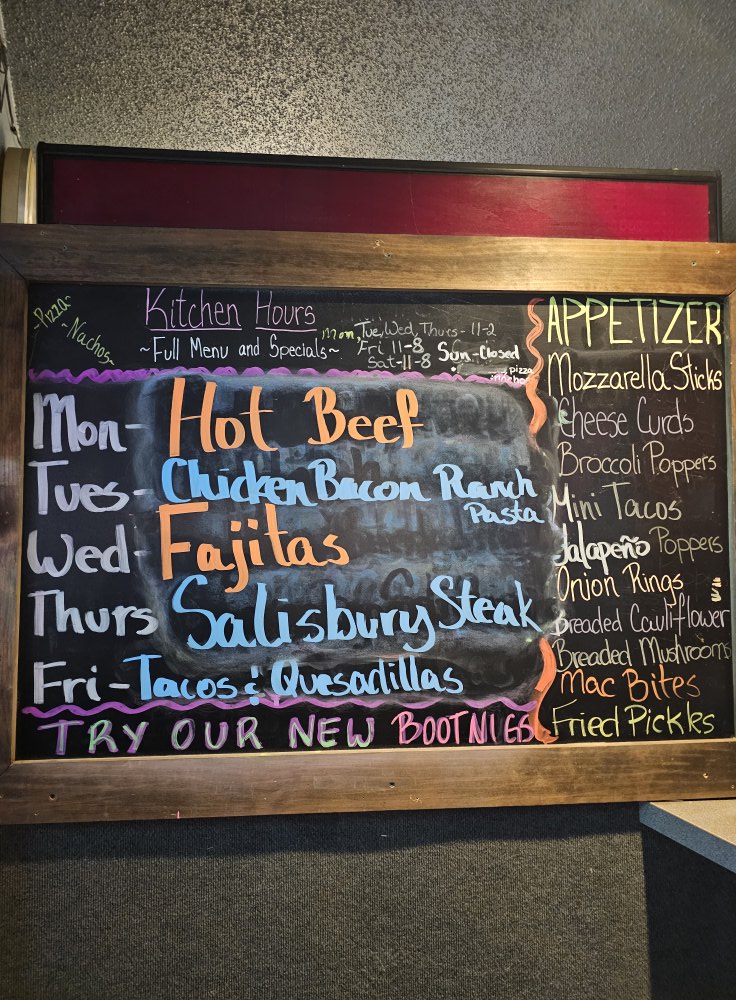 ~Pizza~
~Nachos~
Kitchen Hours
~Full Menu and Specials~
Mon, Tue, Wed, Thurs - 11-2
Fri 11-8
Sat-11-8 Sun-Closed
pizza
Mon- Hot Beef
Tues- Chicken Bacon Ranch
Pasta
Wed- Fajitas
Thurs Salisbury Steak
Fri- Tacos & Quesadillas
TRY OUR NEW BOOTNIGS
APPETIZER
Mozzarella Sticks
Cheese Curds
Broccoli Poppers
Mini Tacos
Jalapeño Poppers
Onion Rings
Breaded Cauliflower
Breaded Mushrooms
Mac Bites
Fried Pickles